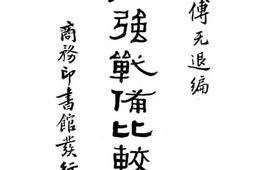 傅无退編
強戰備比較
商務印書館發行